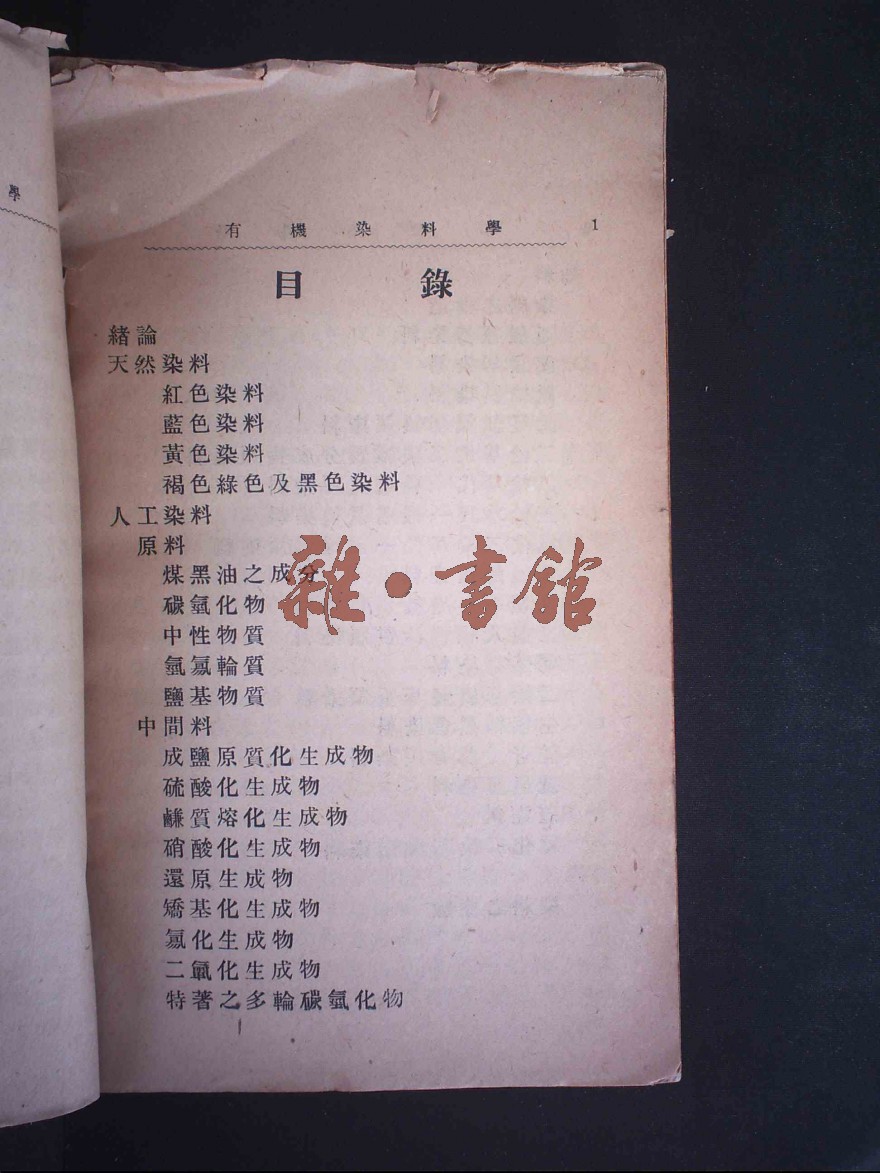 學
有機染料學 1
目錄
緒論
天然染料
紅色染料
藍色染料
黃色染料
褐色綠色及黑色染料
人工染料
原料
煤黑油之成分
碳氫化物
中性物質
氫氮輪質
鹽基物質
中間料
成鹽原質化生成物
硫酸化生成物
鹻質熔化生成物
硝酸化生成物
還原生成物
矯基化生成物
氮化生成物
二氧化生成物
特著之多輪碳氫化物
雜·書館